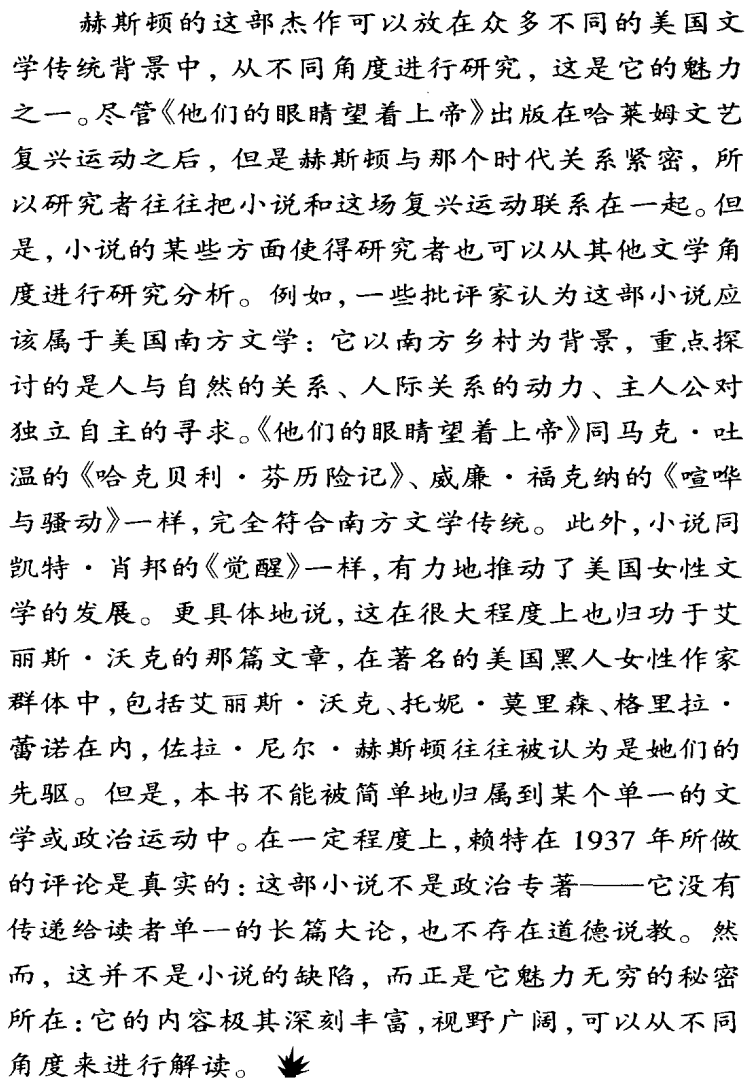 赫斯顿的这部杰作可以放在众多不同的美国文
学传统背景中，从不同角度进行研究，这是它的魅力
之一。尽管《他们的眼睛望着上帝》出版在哈莱姆文艺
复兴运动之后，但是赫斯顿与那个时代关系紧密，所
以研究者往往把小说和这场复兴运动联系在一起。但
是，小说的某些方面使得研究者也可以从其他文学角
度进行研究分析。例如，一些批评家认为这部小说应
该属于美国南方文学：它以南方乡村为背景，重点探
讨的是人与自然的关系、人际关系的动力、主人公对
独立自主的寻求。《他们的眼睛望着上帝》同马克·吐
温的《哈克贝利·芬历险记》、威廉·福克纳的《喧哗
与骚动》一样，完全符合南方文学传统。此外，小说同
凯特·肖邦的《觉醒》一样，有力地推动了美国女性文
学的发展。更具体地说，这在很大程度上也归功于艾
丽斯·沃克的那篇文章，在著名的美国黑人女性作家
群体中，包括艾丽斯·沃克、托妮·莫里森、格里拉·
蕾诺在内，佐拉·尼尔·赫斯顿往往被认为是她们的
先驱。但是，本书不能被简单地归属到某个单一的文
学或政治运动中。在一定程度上，赖特在 1937 年所做
的评论是真实的：这部小说不是政治专著——它没有
传递给读者单一的长篇大论，也不存在道德说教。然
而，这并不是小说的缺陷，而正是它魅力无穷的秘密
所在：它的内容极其深刻丰富，视野广阔，可以从不同
角度来进行解读。